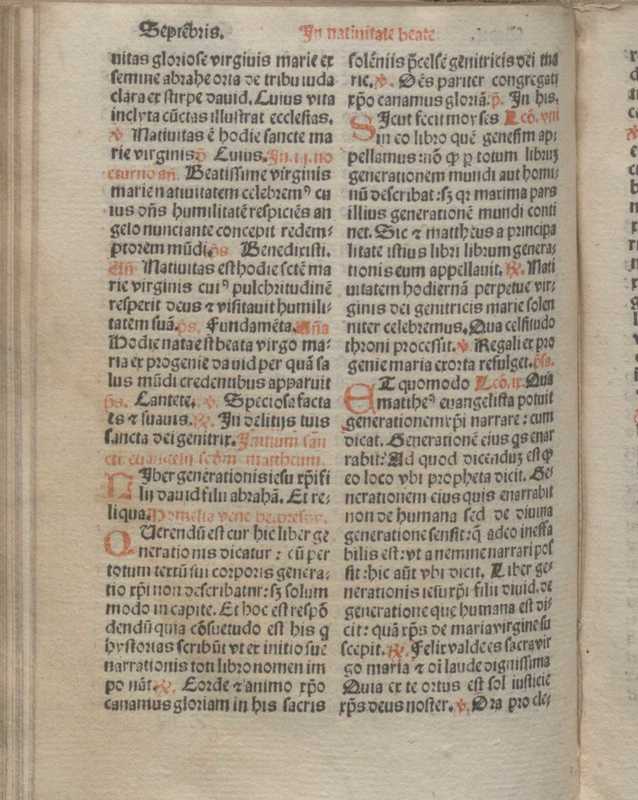 Septēbris.
In natiuitate beate
nitas gloriose virginis marie ex
semine abrahe orta de tribu iuda
clara ex stirpe dauid. Cuius vita
inclyta cūctas illustrat ecclesias.
℣ Natiuitas ē hodie sancte ma
rie virginis p̄ Cuius. In .ij. no
cturno an̄. Beatissime virginis
marie natiuitatem celebremꝰ cu
ius dn̄s humilitatē respiciēs an
gelo nunciante concepit redem-
ptorem mūdi. ps̄ Benedixisti.
Natiuitas est hodie sctē ma
rie virginis cuiꝰ pulchritudinē
respexit deus ⁊ visitauit humili-
tatem suā. ps̄. Fundamēta. Aña
Hodie nata est beata virgo ma-
ria ex progenie dauid per quā sa
lus mūdi credentibus apparuit
ps̄. Cantete. ℣. Speciosa facta
es ⁊ suauis. ℟. In delitijs tuis
sancta dei genitrix. Initium san
cti euangelij scdm mattheum.
LIber generationis iesu xp̄i fi
lij dauid filij abrahā. Et re-
liqua. Homelia vene
QUerendū est cur hic liber ge
nerationis dicatur : cū per
totum textū sui corporis genera-
tio xp̄i non describatur: sꝫ solum
modo in capite. Et hoc est respō
dendū quia cōsuetudo est his q
hystorias scribūt vt ex initio sue
narrationis toti libro nomen im
ponāt. ℟. Corde ⁊ animo xp̄o
canamus gloriam in his sacris
solēniis p̄celse genitricis dei ma
rie. ℣. Oēs pariter congregati
xp̄o canamus gloriā. p̄. In his.
SIcut fecit moyses Lcō. viij
in eo libro quē genesim ap-
pellamus: nō ꝙ p totum librum
generationem mundi aut homi-
nū describat: sꝫ qr maxima pars
illius generationē mundi conti
net. Sic ⁊ mattheus a principa
litate istius libri librum genera-
tionis eum appellauit. ℟. Nati
uitatem hodiernā perpetue vir-
ginis dei genitricis marie solen
niter celebremus. Qua celsitudo
throni processit. ℣. Regali ex pro
genie maria exorta refulget.
ET quomodo Lcō. ix. Qua
mattheꝰ euangelista potuit
generationem xp̄i narrare: cum
dicat. Generationē eius qs enar
rabit: Ad quod dicendū est ꝙ
eo loco vbi propheta dicit. Ge-
nerationem eius quis enarrabit
non de humana sed de diuina
generatione sensit: q̄ adeo ineffa
bilis est: vt a nemine narrari pos
sit: hic aūt vbi dicit. Liber ge-
nerationis iesu xp̄i filij dauid. de
generatione que humana est di-
cit: quā xp̄s de maria virgine su
scepit. ℟. Felix valde es sacra vir
go maria ⁊ oī laude dignissima
Quia ex te ortus est sol iusticie
xp̄s deus noster. ℣. Ora pro cle-